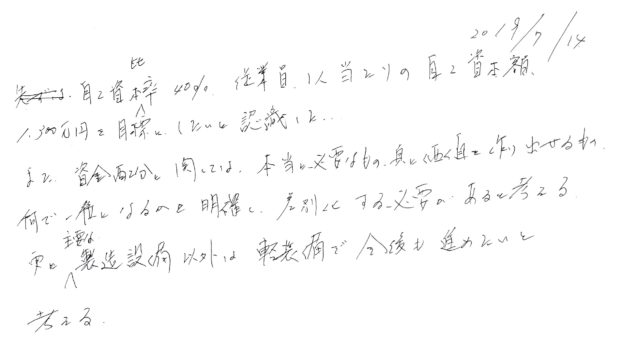 2019/7/14
自己資本比率40%. 従業員1人当たりの自己資本額、
1,300万円を目標にしたいと認識した..
また、資金配分に関しては、本当に必要なもの、真に価値を作り出せるもの.
何で一種になるのを明確に、差別化する必要があると考える.
更に主要な製造設備以外は軽装備で今後も進めたいと
考える.